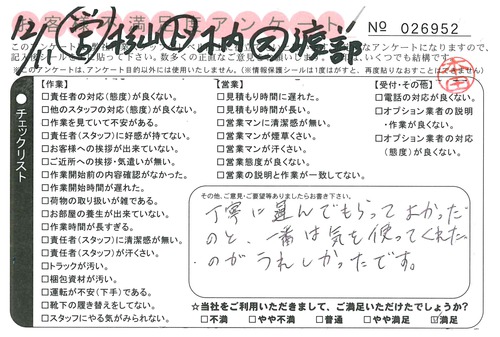 お客様不満足度アンケート
12/1 (営)杉山 (リ)木内 (メ)渡部
No 026952
※このアンケートは、アンケート目的以外には使用いたしません。(※情報保護シールは1度はがすと、再度貼りなおすことはできません)
チェックリスト
【作業】
□責任者の対応(態度)が良くない。
□他のスタッフの対応(態度)が良くない。
□作業を見ていて不安がある。
□責任者(スタッフ)に好感が持てない。
□お客様への挨拶が出来ていない。
□ご近所への挨拶・気遣いが無い。
□作業開始前の内容確認がなかった。
□作業開始時間が遅れた。
□荷物の取り扱いが雑である。
□お部屋の養生が出来ていない。
□作業時間が長すぎる。
□責任者(スタッフ)に清潔感が無い。
□責任者(スタッフ)が汗くさい。
□トラックが汚い。
□梱包資材が汚い。
□運転が不安(下手)である。
□靴下の履き替えをしてない。
□スタッフにやる気がみられない。
【営業】
□見積もり時間に遅れた。
□見積もり時間が長い。
□営業マンに清潔感が無い。
□営業マンが煙草くさい。
□営業マンが汗くさい。
□営業態度が良くない。
□営業の説明と作業が一致してない。
【受付・その他】
□電話の対応が良くない。
□オプション業者の説明
・作業が良くない。
□オプション業者の対応
(態度)が良くない。
その他、ご意見・ご要望等ありましたらお書き下さい。
丁寧に運んでもらってよかった
のと、一番は気を使ってくれた
のがうれしかったです。
☆当社をご利用いただきまして、ご満足いただけたでしょうか?
□不満 □やや不満 □普通 □やや満足 ☑満足